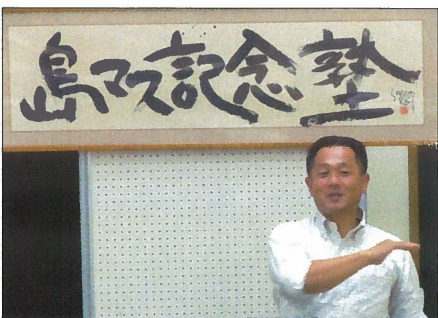 島マス記念塾